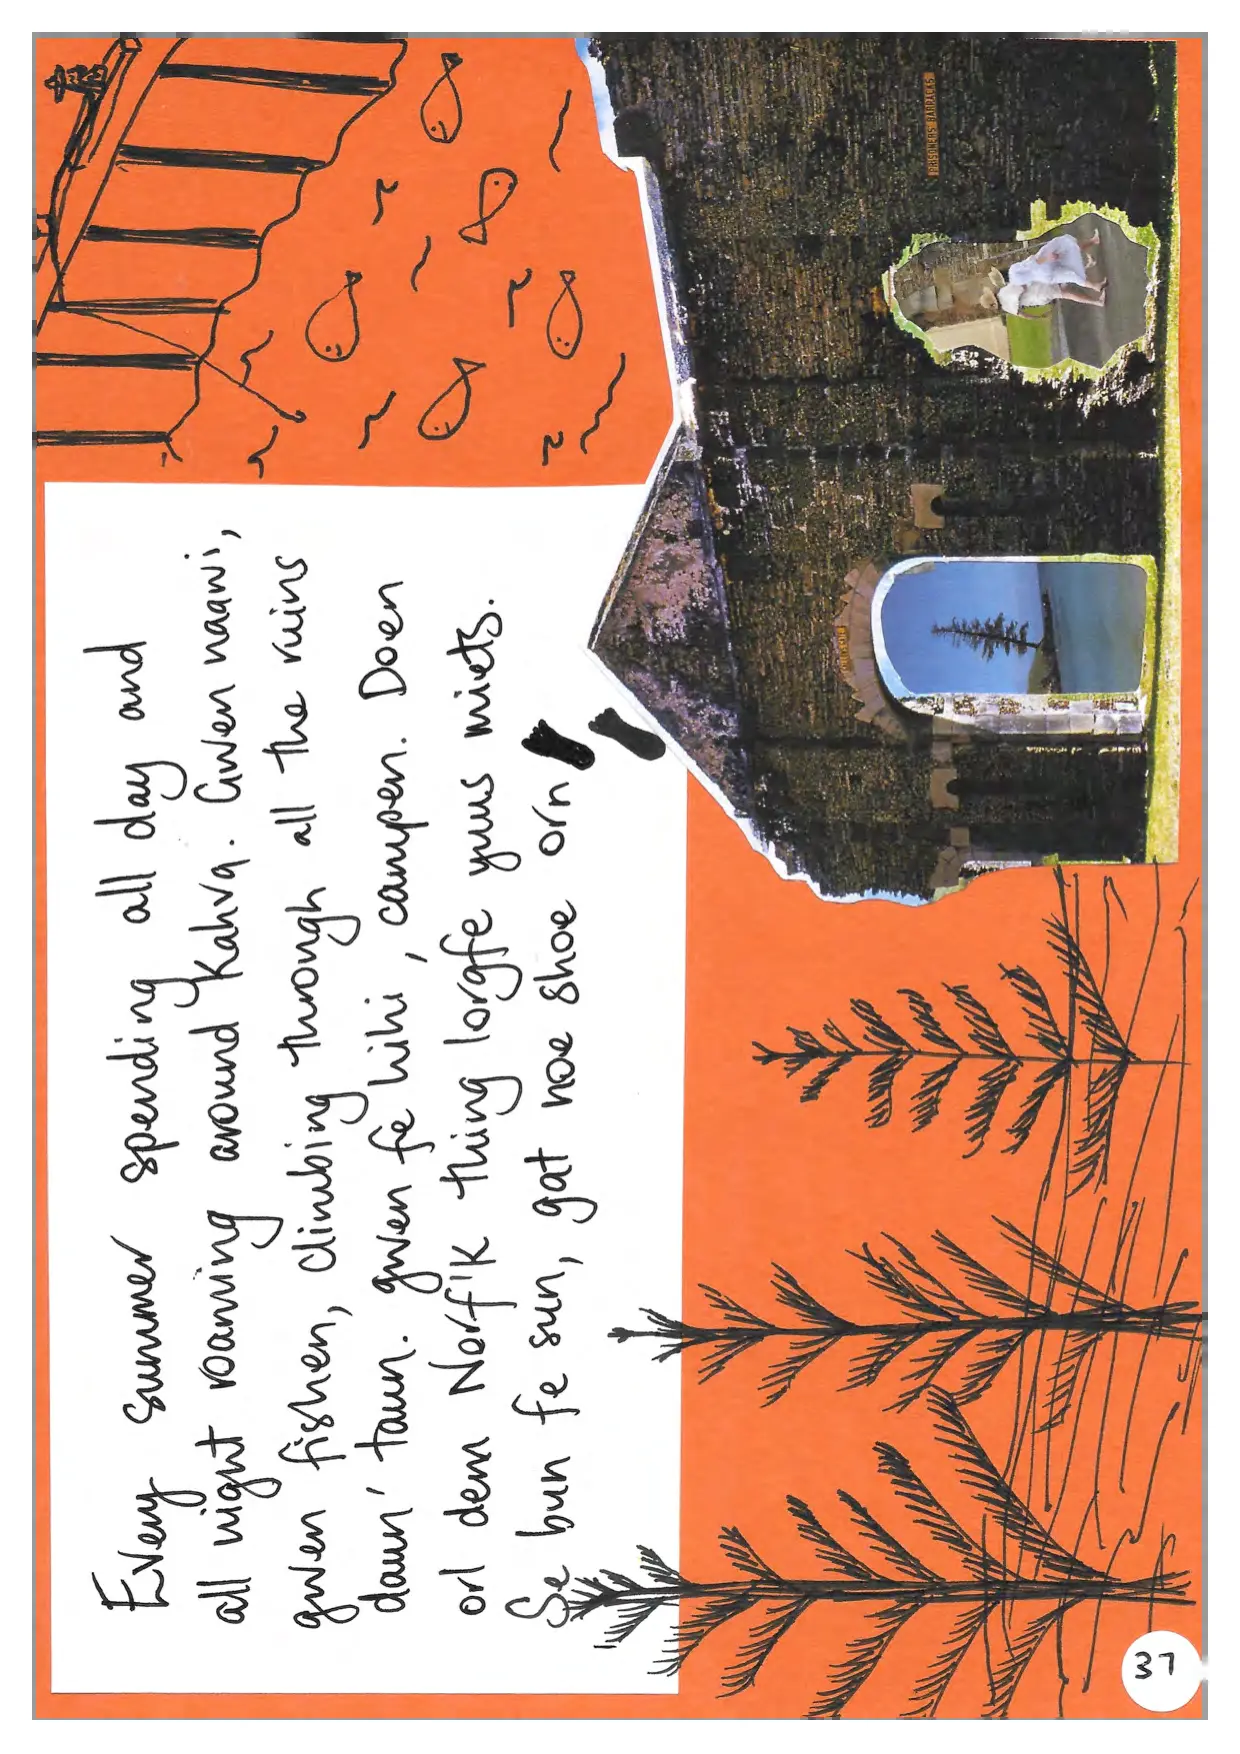 Every summer spending all day and
all night roaming around Kahva. Gwen naawi,
gwen fishen, climbing through all the ruins
daun' taun. gwen fe hihi, campen. Doen
orl dem Norf'k thing lorgfe yuus miets.
Se bun fe sun, gat noe shoe orn
PRISONERS BARRACKS
37